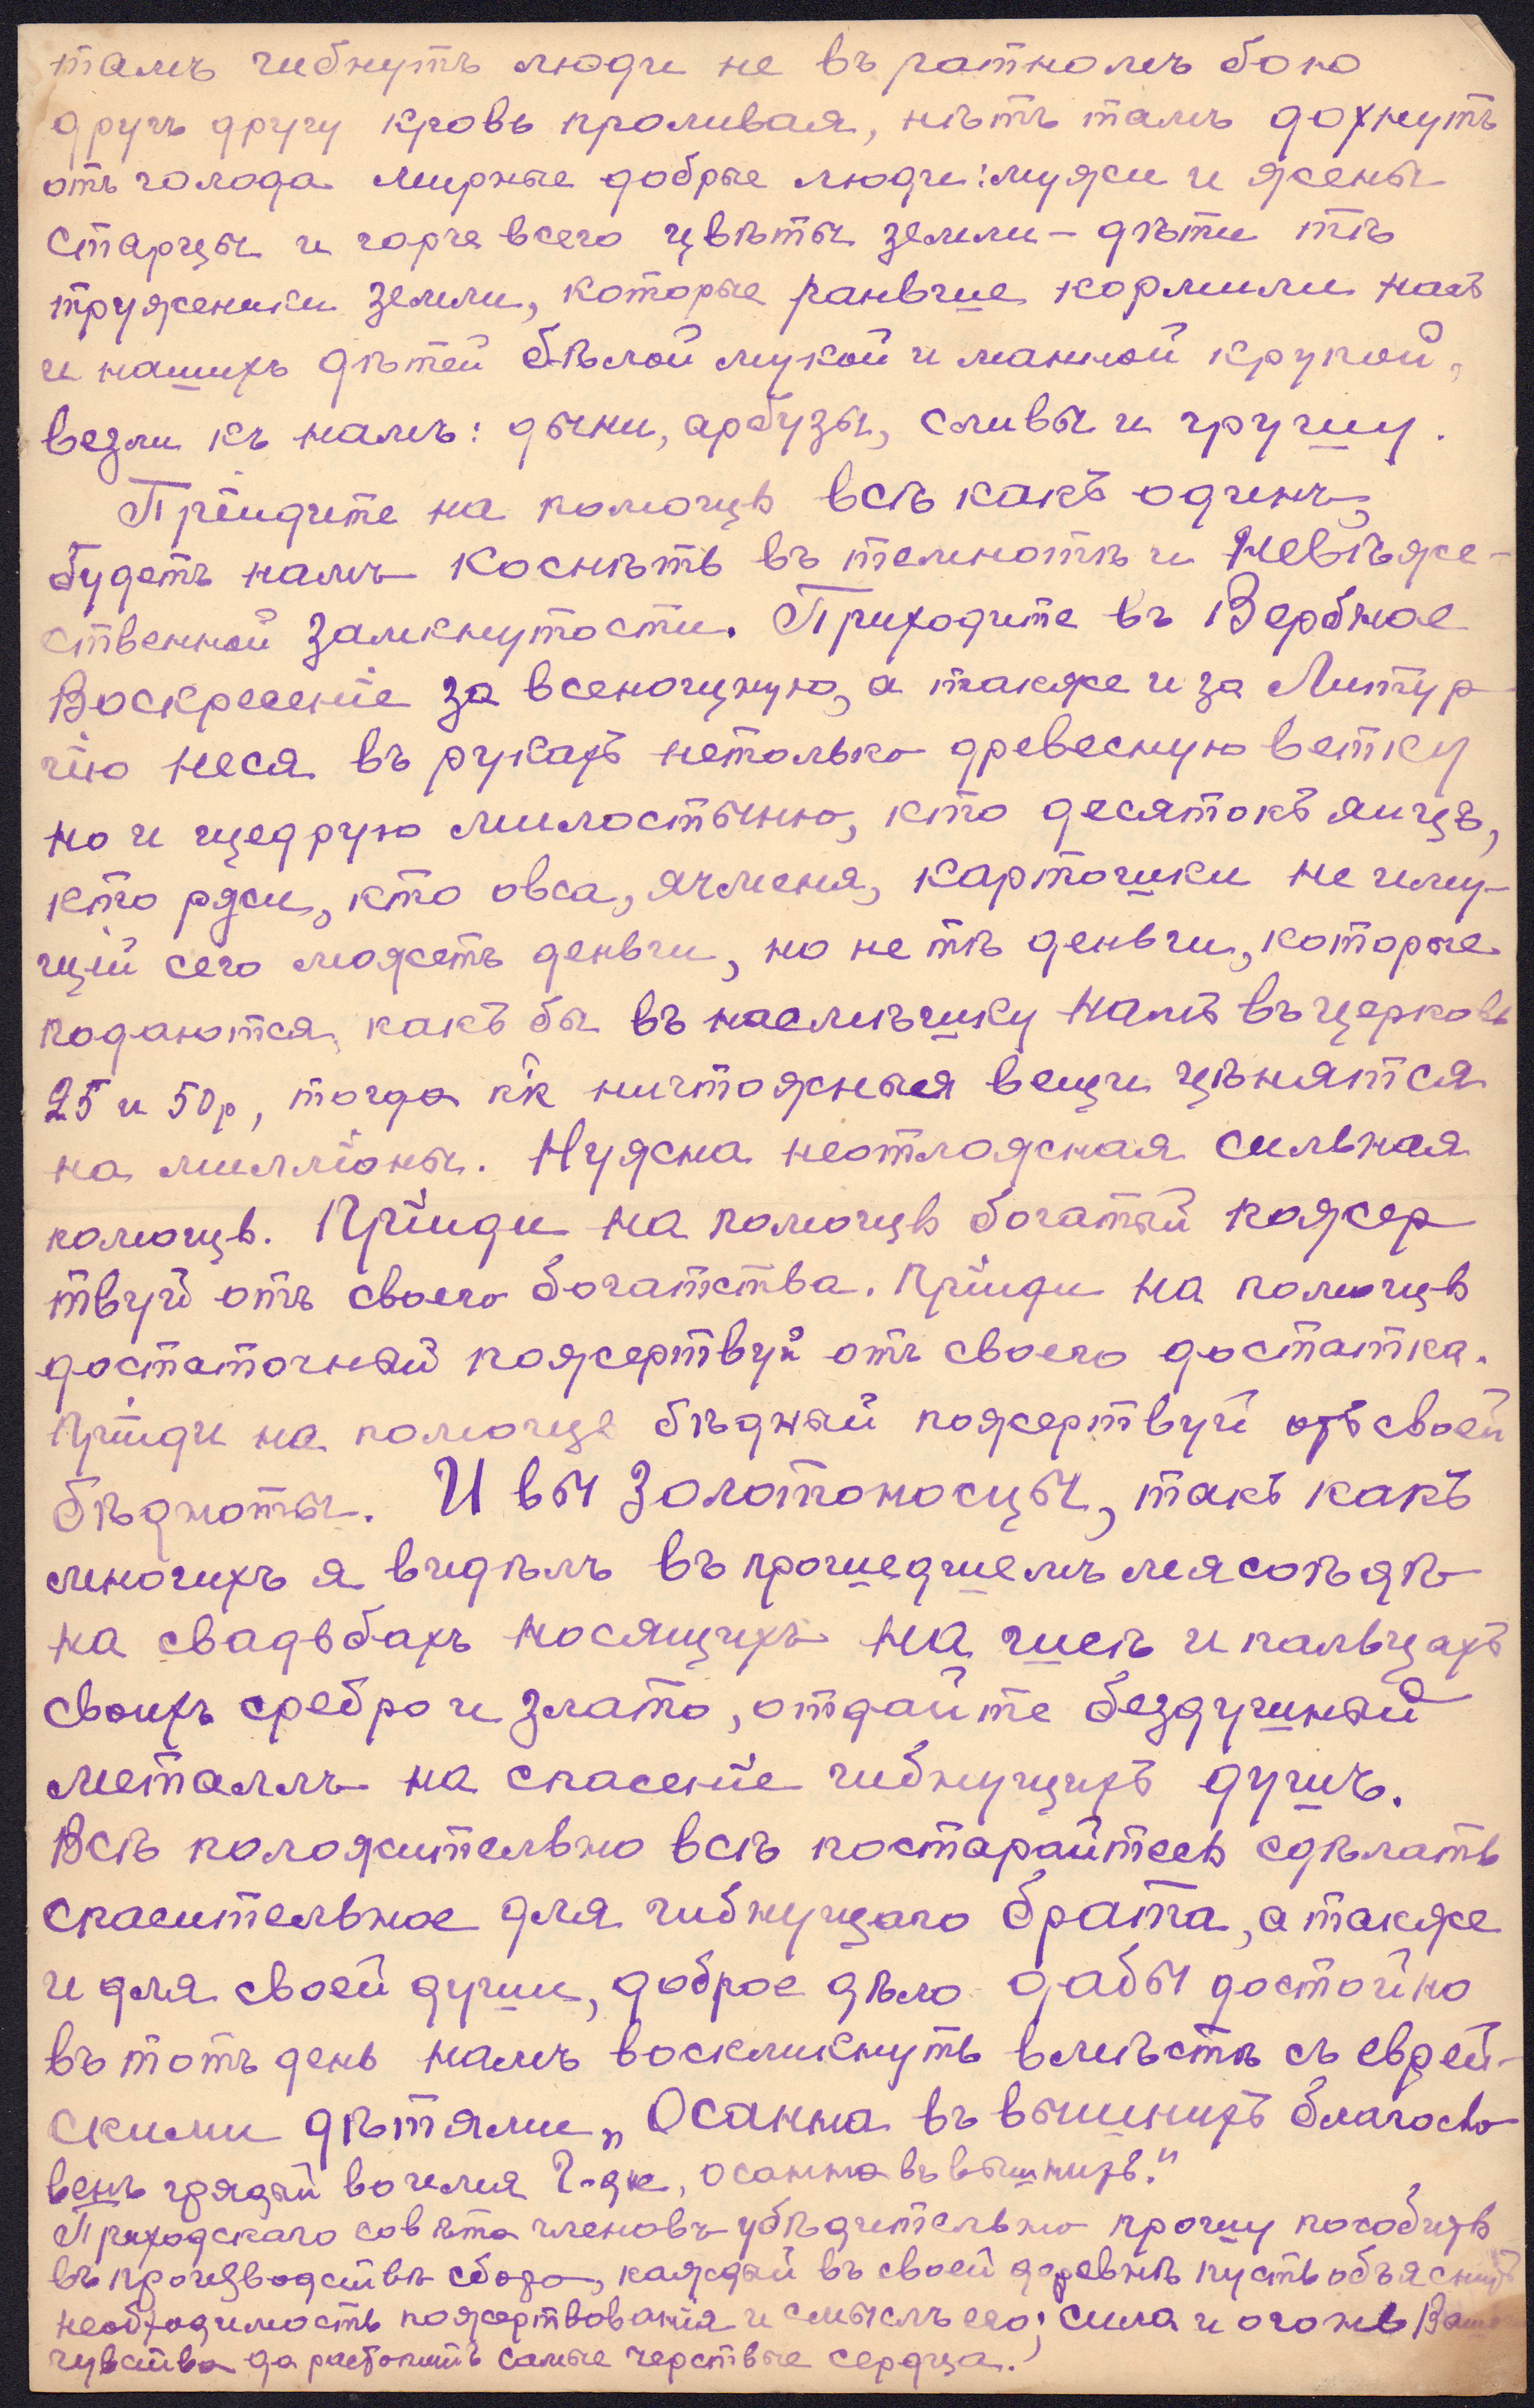 тамъ гибнутъ люди не въ ратномъ бою
другъ другу кровь проливая, нѣтъ тамъ дохнутъ
отъ голода мирные добрые люди: мужи и жены
старцы и горче всего цвѣты земли – дѣти тѣ
труженики земли, которые раньше кормили насъ
и нашихъ дѣтей бѣлой мукой и манной крупой,
везли къ намъ: дыни, арбузы, сливы и грушу.
Пріидите на помощь всѣ какъ одинъ,
будетъ намъ коснѣть въ темнотѣ и невѣже-
ственной замкнутости. Приходите въ Вербное
Воскресеніе за всенощную, а также и за Литур-
гію неся въ рукахъ нетолько древесную ветку
но и щедрую милостыню, кто десятокъ яицъ,
кто ржи, кто овса, ячменя, картошки не иму-
щій сего можетъ деньги, но не тѣ деньги, которые
подаются, какъ бы въ насмѣшку намъ въ церковь
25 и 50р, тогда к'к ничтожныя вещи цѣнятся
на милліоны. Нужна неотложная сильная
помощь. Пріиди на помощь богатый пожер
твуй отъ своего богатства. Пріиди на помощь
достаточный пожертвуй отъ своего достатка.
Пріиди на помощь бѣдный пожертвуй отъ своей
бѣдноты. И вы золотоносцы, такъ какъ
многихъ я видѣлъ въ прошедшемъ мясоѣдѣ
на свадьбахъ носящихъ на шеѣ и пальцахъ
своихъ сребро и злато, отдайте бездушный
металлъ на спасеніе гибнущихъ душъ.
Всѣ положительно всѣ постарайтесь сдѣлать
спасительное для гибнущаго брата, а также
и для своей души, доброе дѣло дабы достойно
въ тотъ день намъ воскликнуть вмѣстѣ съ еврей-
скими дѣтями „Осанна въ вышнихъ благосло
венъ грядый во имя Г-дне, осанна въ вышнихъ."
Приходскаго совѣта членовъ убѣдительно прошу пособить
въ производствѣ сбора, каждый въ своей деревнѣ пусть объяснитъ
необходимость пожертвованія и смыслъ его; сила и огонь
чувства да растопитъ самые черствые сердца.